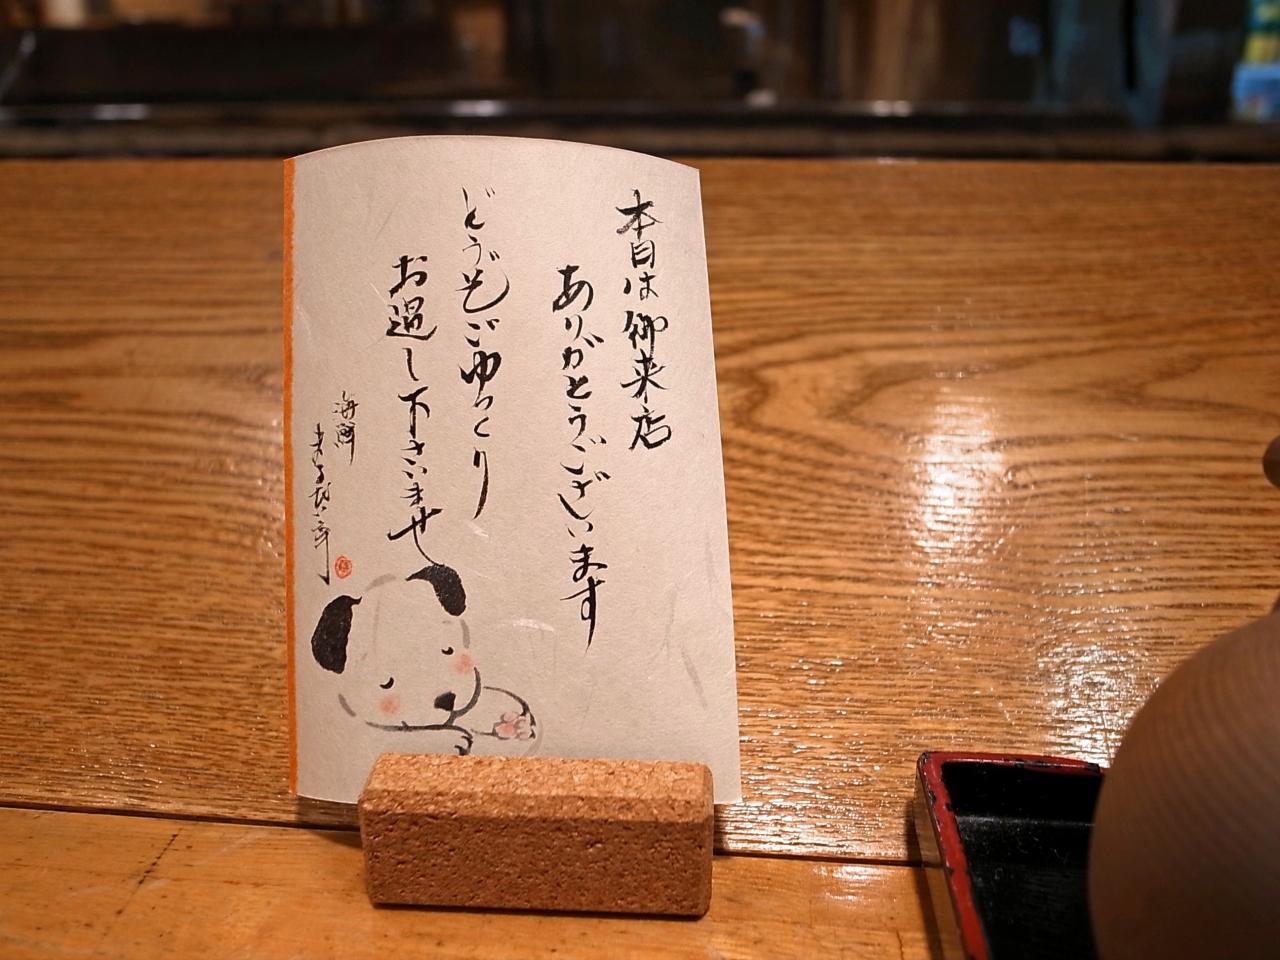 本日は御来店
ありがとうございます
どうぞごゆっくり
お過し下さいませ
海鮮